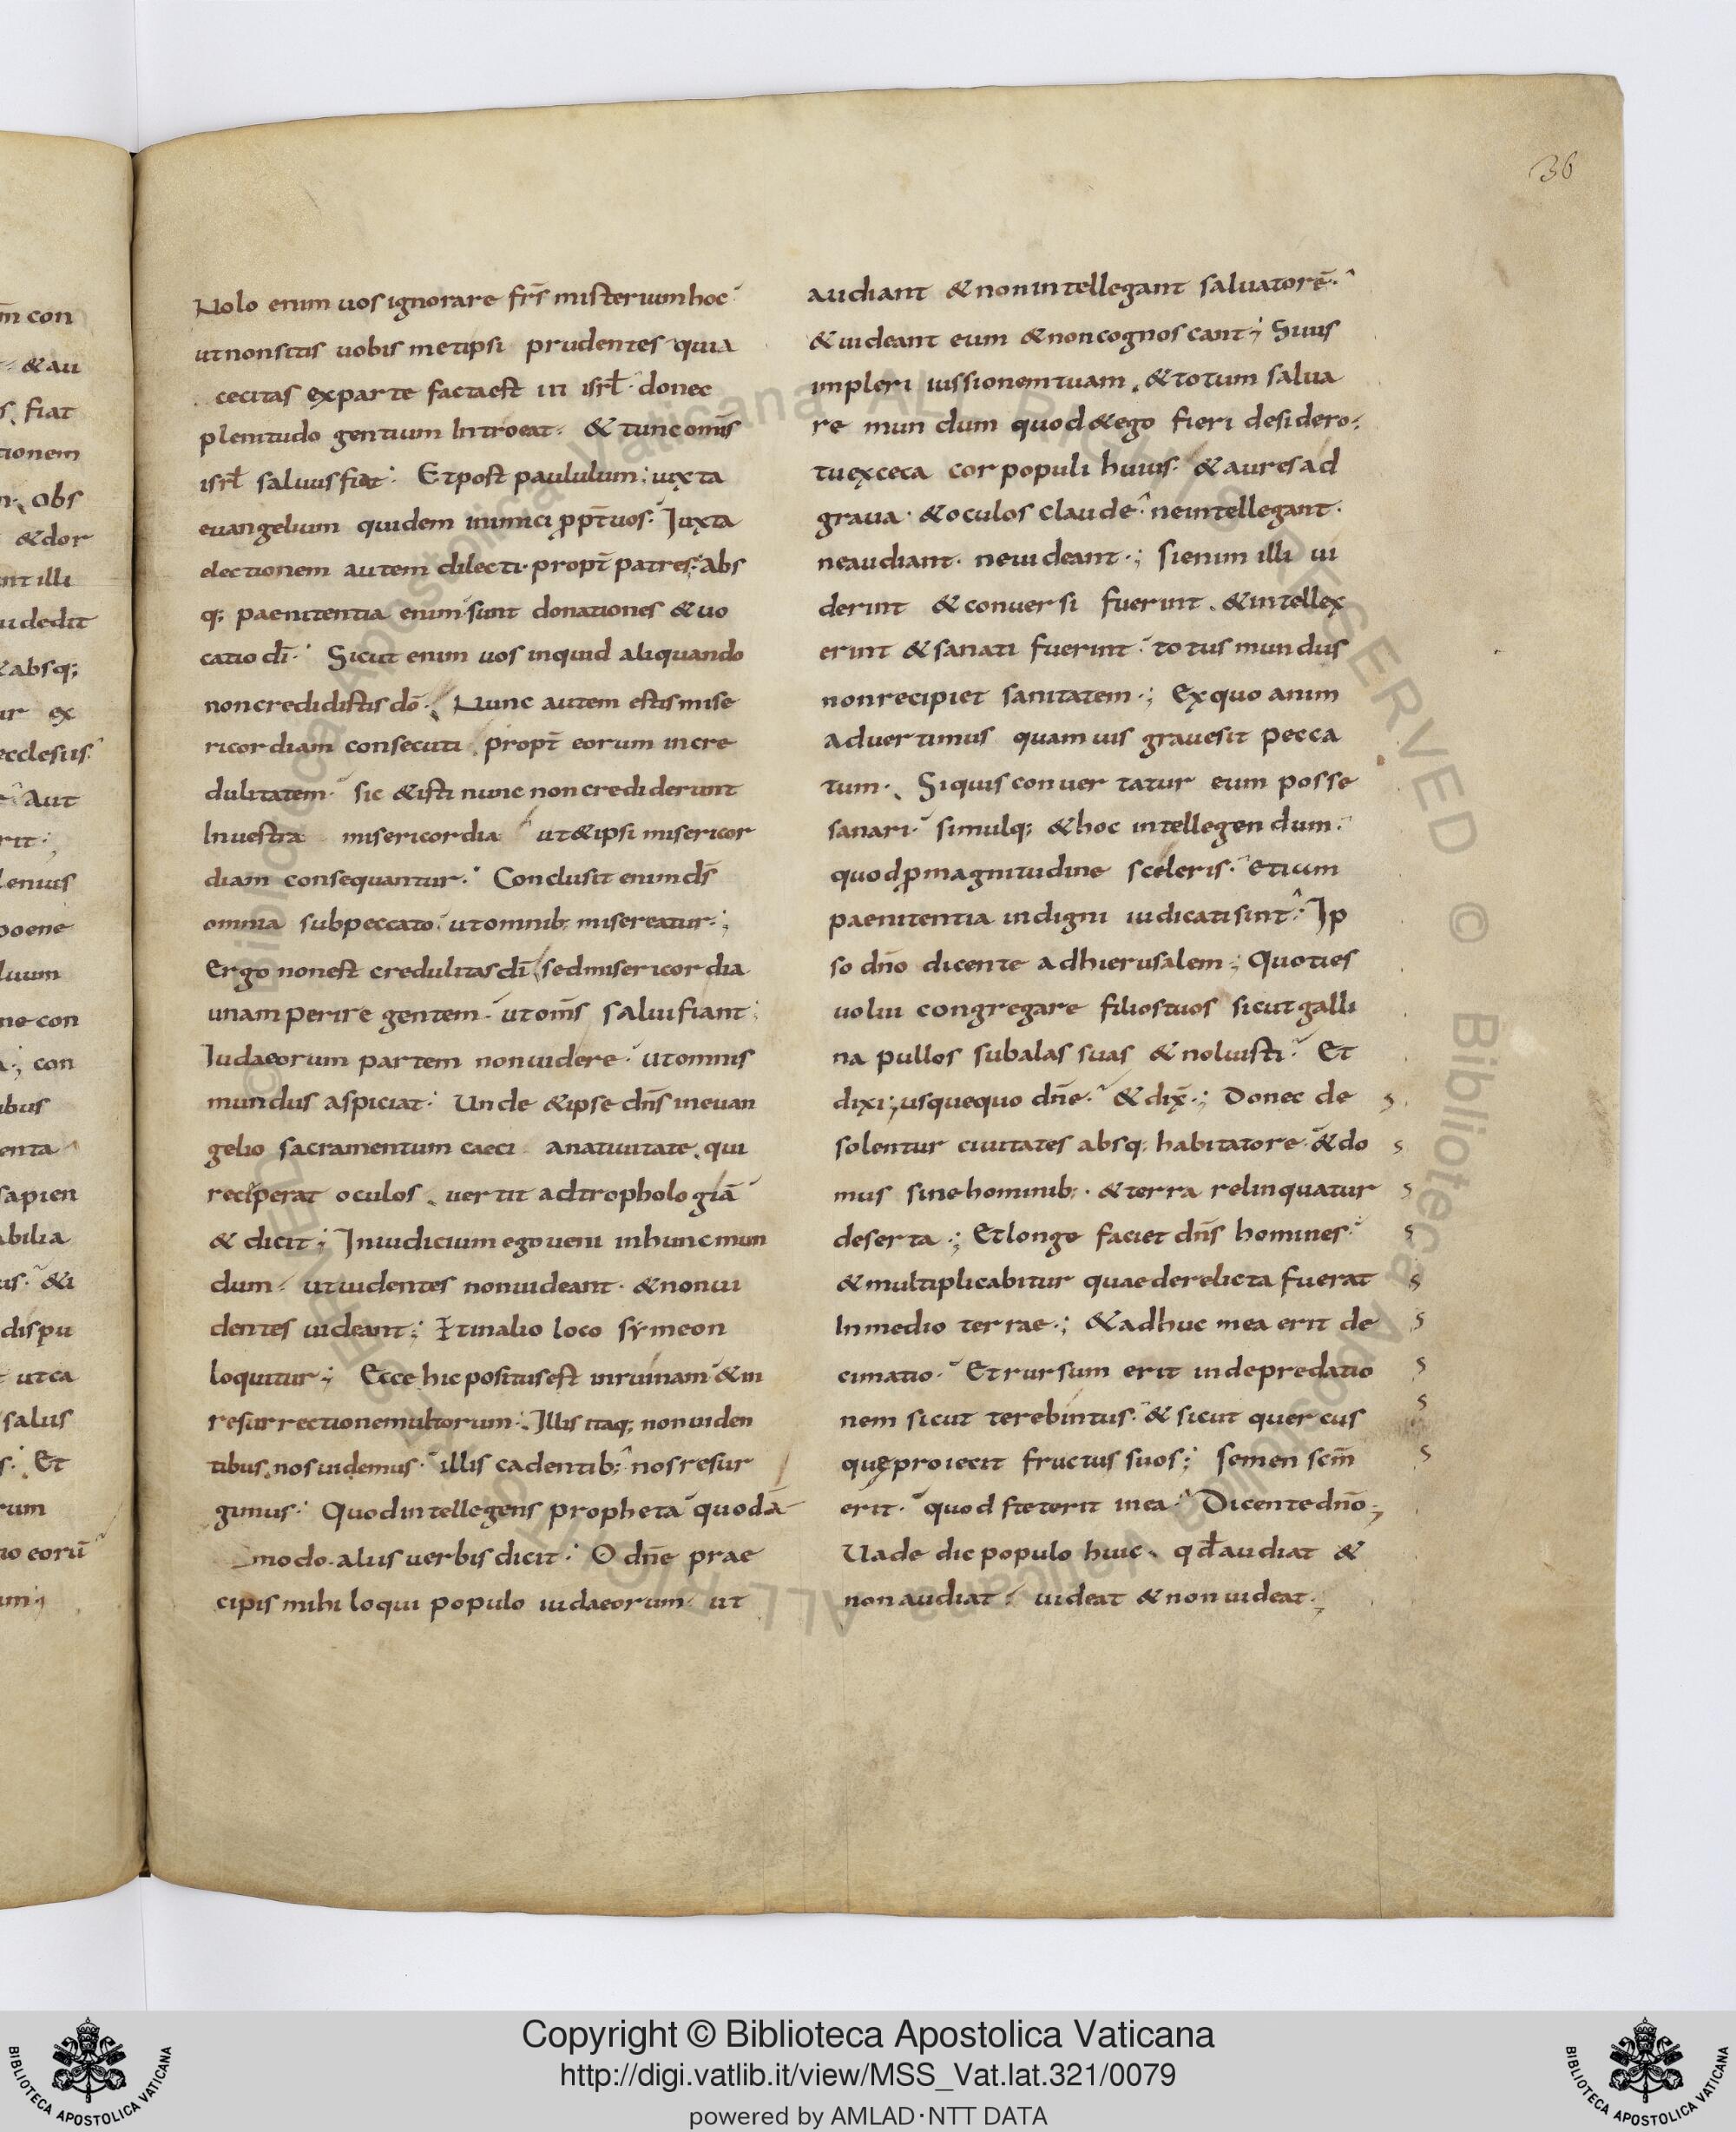 36
Nolo enim uos ignorare frs̄ misterium hoc
ut non sitis uobis metipsi prudentes quia
cecitas ex parte facta est in isrł donec
plenitudo gentium Introeat. & tunc omīs
isrł saluus fiat. Et post paululum; iuxta
euangelium quidem inimici ꝓpt̄ uos. Iuxta
electionem autem dilecti. propt̄ patres. abs
q; paenitentia enim sunt donationes & uo
catio dī. Sicut enim uos inquid aliquando
non credidistis dō. Nunc autem estis mise
ricordiam consecuti. propt̄ eorum incre
dulitatem. sic & isti nunc non crediderunt
In uestra misericordia ut & ipsi misericor
diam consequantur. Conclusit enim ds̄
omnia sub peccato. ut omnib; misereatur.;
Ergo non est credulitas dī sed misericordia
unam perire gentem. ut omīs salui fiant;
Iudaeorum partem non uidere. ut omnis
mundus aspiciat. Unde & ipse dn̄s in euan
gelio sacramentum caeci a natiuitate. qui
reciperat oculos. uertit ad trophologiā
& dicit; In iudicium ego ueni in hunc mun
dum. ut uidentes non uideant. & non ui
dentes uideant.; Et in alio loco symeon
loquitur; Ecce hic positus est in ruinam & in
resurrectione multorum. Illis itaq; non uiden
tibus. nos uidemus. illis cadentib; nos resur
gimus. Quod intellegens propheta quodā
modo. aliis uerbis dicit. O dn̄e prae
cipis mihi loqui populo iudaeorum ut
audiant & non intellegant saluatorē.
& uideant eum & non cognoscant; Siuis
impleri iussionem tuam. & totum salua
re mundum quod & ego fieri desidero.
tu exceca cor populi huius. & aures ad
graua. & oculos claude. ne intellegant.
ne audiant. ne uideant.; si enim illi ui
derint & conuersi fuerint. & intellex
erint & sanati fuerint. totus mundus
non recipiet sanitatem.; Ex quo anim
aduertimus quam uis graue sit pecca
tum. Si quis conuertatur eum posse
sanari. simulq; & hoc intellegendum.
quod ꝓ magnitudine sceleris. Etium
paenitentia indigni iudicati sint. Ip
so dn̄o dicente ad hierusalem.; Quoties
uolui congregare filios tuos sicut galli
na pullos sub alas suas & noluisti. Et
dixi; usquequo dn̄e. & dix̄.; Donec de
solentur ciuitates absq; habitatore. & do
mus sine hominib;. & terra relinquatur
deserta.; Et longe faciet dn̄s homines.
& multiplicabitur quae derelicta fuerat
In medio terrae.; & adhuc mea erit de
cimatio. Et rursum erit in depredatio
nem sicut terebintus. & sicut quercus
quę proiecit fructus suos; semen scm̄
erit. quod steterit in ea. Dicente dn̄o;
Uade dic populo huic. qđ audiat &
non audiat. uideat & non uideat.;
Copyright © Biblioteca Apostolica Vaticana
http://digi.vatlib.it/view/MSS_Vat.lat.321/0079
powered by AMLAD·NTT DATA
BIBLIOTECA APOSTOLICA VATICANA
BIBLIOTECA APOSTOLICA VATICANA